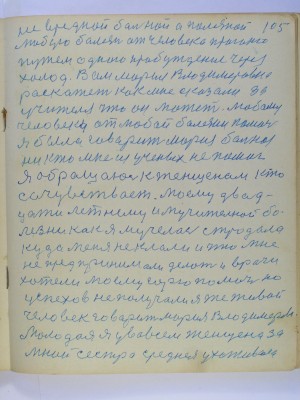 не вредной бапкой а полезной 105
любую болезн от человека прогонит
путем одного пробуждение через
холод. Вам мария Владимеровна
раскажет как мне сказали до
учителя што он может. Любому
человеку от любой болезни помоч
Я была говарит мария бапкой
ни кто мне из ученых не помог
Я обращаюс к женщенам кто
сочувствает. Моему двад-
цати летнему и мучителной бо-
лезни как я мучелас страдала
куда меня не клали и што мне
не предпринимали делат и врачи
хотели моему горю помоч но
успехов не получали я же живой
человек говарит мария Владимеров.
Молодая я у вас всем женщена за
мной сестра средняя ухаживала